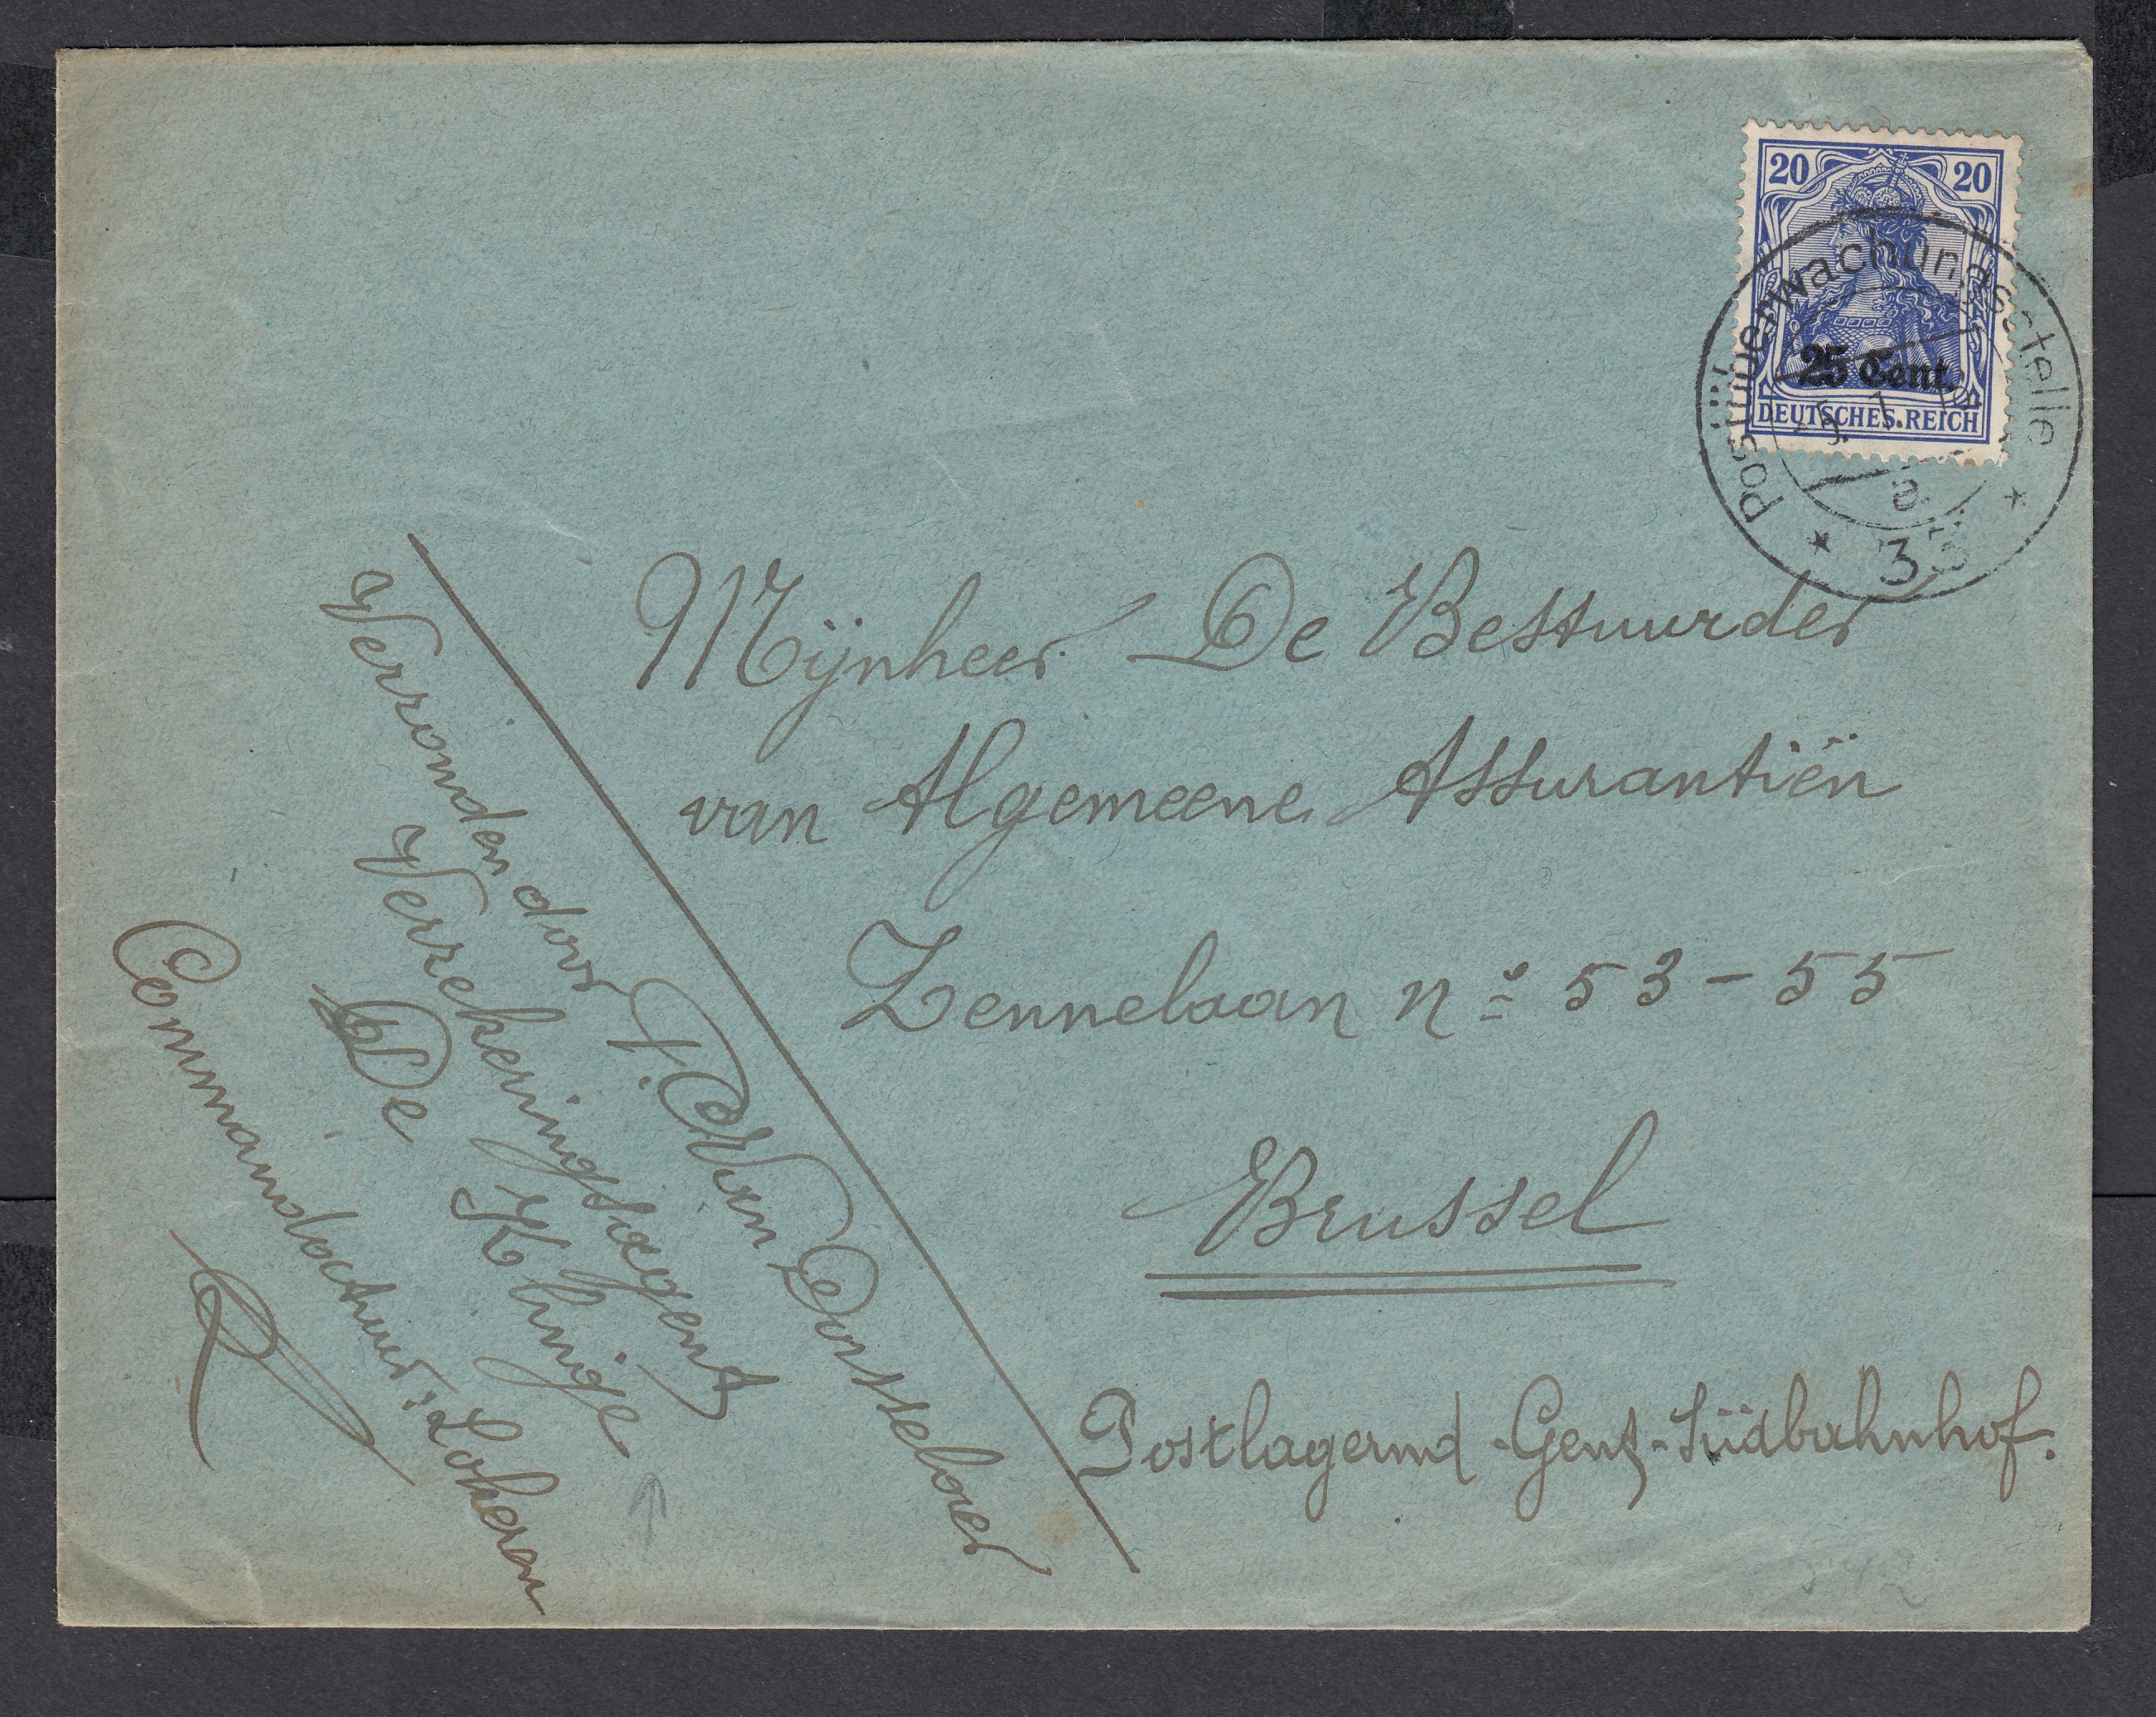 20 20
25 Cent.
DEUTSCHES REICH
Postüberwachungsstelle
a.
* 33 *
Mijnheer De Bestuurder
van Algemeene Assurantiën
Zennelaan nº 53-55
Brussel
Postlagernd - Gent - Südbahnhof.
Verzonden door F. Van Dosselaer
Verzekeringsagent
De Klinge
Commandatuur: Lokeren